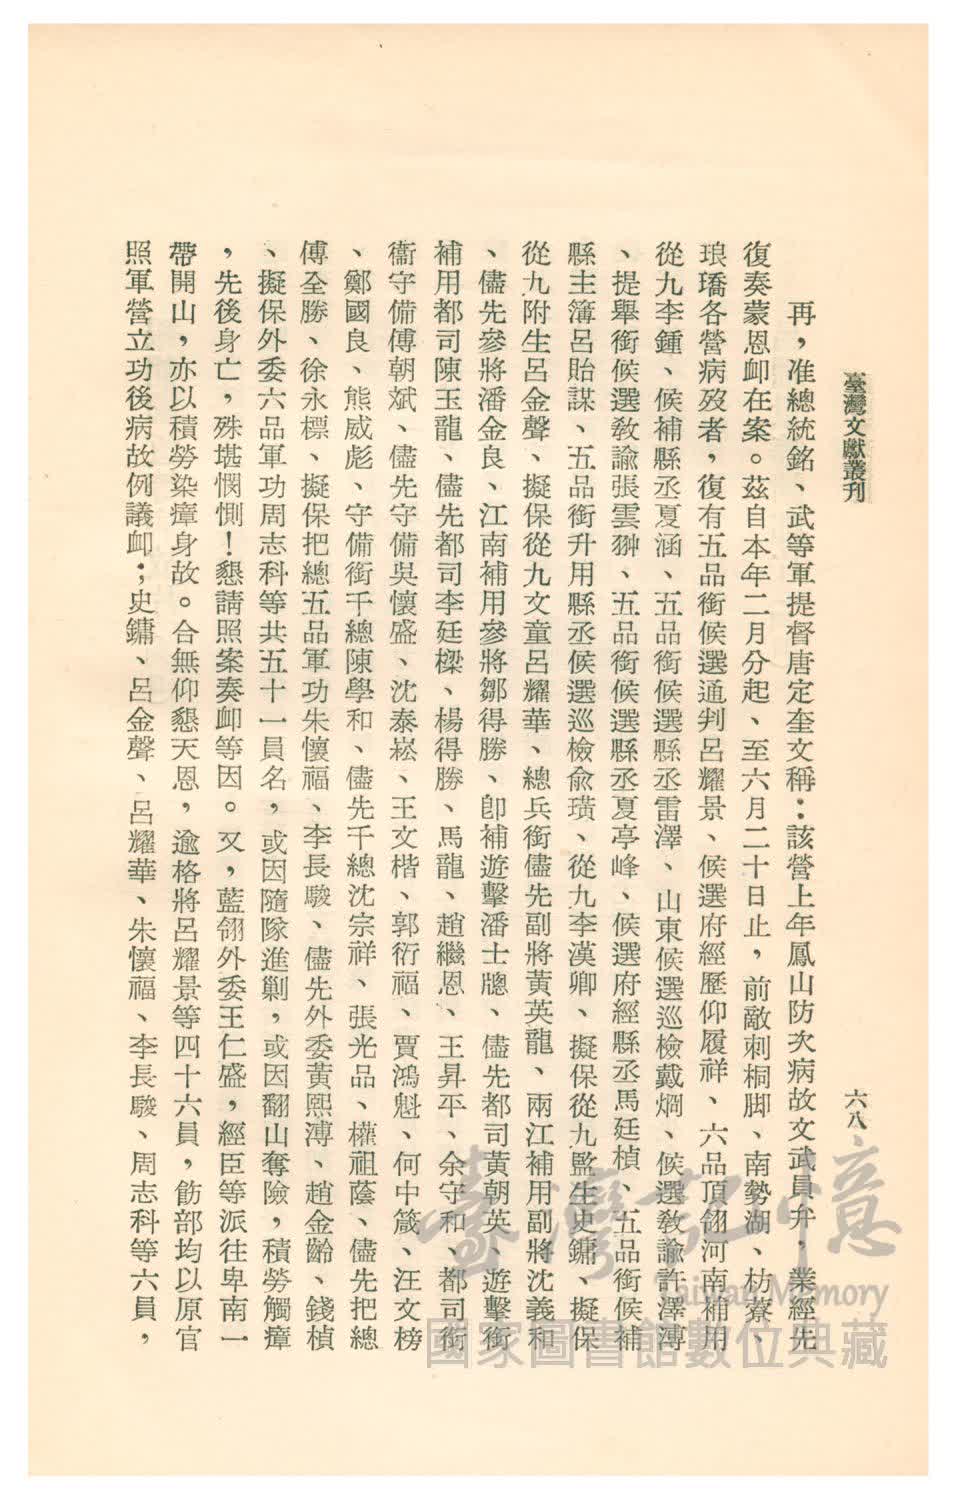 臺灣文獻叢刊
六八
再，准總統銘、武等軍提督唐定奎文稱：該營上年鳳山防次病故文武員弁，業經先
復奏蒙恩卹在案。茲自本年二月分起、至六月二十日止，前敵刺桐脚、南勢湖、枋藔、
琅𤩝各營病歿者，復有五品銜候選通判呂耀景、候選府經歷仰履祥、六品頂翎河南補用
從九李鍾、候補縣丞夏涵、五品銜候選縣丞雷澤、山東候選巡檢戴烱、候選教諭許澤溥
、提舉銜候選教諭張雲翀、五品銜候選縣丞夏亭峰、候選府經縣丞馬廷楨、五品銜候補
縣主簿呂貽謀、五品銜升用縣丞候選巡檢俞璜、從九李漢卿、擬保從九監生史鏞、擬保
從九附生呂金聲、擬保從九文童呂耀華、總兵銜儘先副將黃英龍、兩江補用副將沈義和
、儘先參將潘金良、江南補用參將鄒得勝、卽補遊擊潘士聰、儘先都司黃朝英、遊擊銜
補用都司陳玉龍、儘先都司李廷樑、楊得勝、馬龍、趙繼恩、王昇平、余守和、都司銜
衞守備傅朝斌、儘先守備吳懷盛、沈泰崧、王文楷、郭衍福、賈鴻魁、何中箴、汪文榜
、鄭國良、熊威彪、守備銜千總陳學和、儘先千總沈宗祥、張光品、權祖蔭、儘先把總
傅全勝、徐永標、擬保把總五品軍功朱懷福、李長駿、儘先外委黃熙溥、趙金齡、錢楨
、擬保外委六品軍功周志科等共五十一員名，或因隨隊進剿，或因翻山奪險，積勞觸瘴
，先後身亡，殊堪憫惻！懇請照案奏卹等因。又，藍翎外委王仁盛，經臣等派往卑南一
帶開山，亦以積勞染瘴身故。合無仰懇天恩，逾格將呂耀景等四十六員，飭部均以原官
照軍營立功後病故例議卹；史鏞、呂金聲、呂耀華、朱懷福、李長駿、周志科等六員，
臺灣記憶
Taiwan Memory
國家圖書館數位典藏